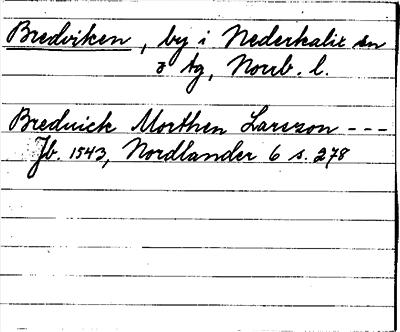 Bredviken, by i Nederkalix sn
o tg, Norrb. l.
Breduick Morthen Larszon ---
Jb. 1543, Nordlander 6 s. 278